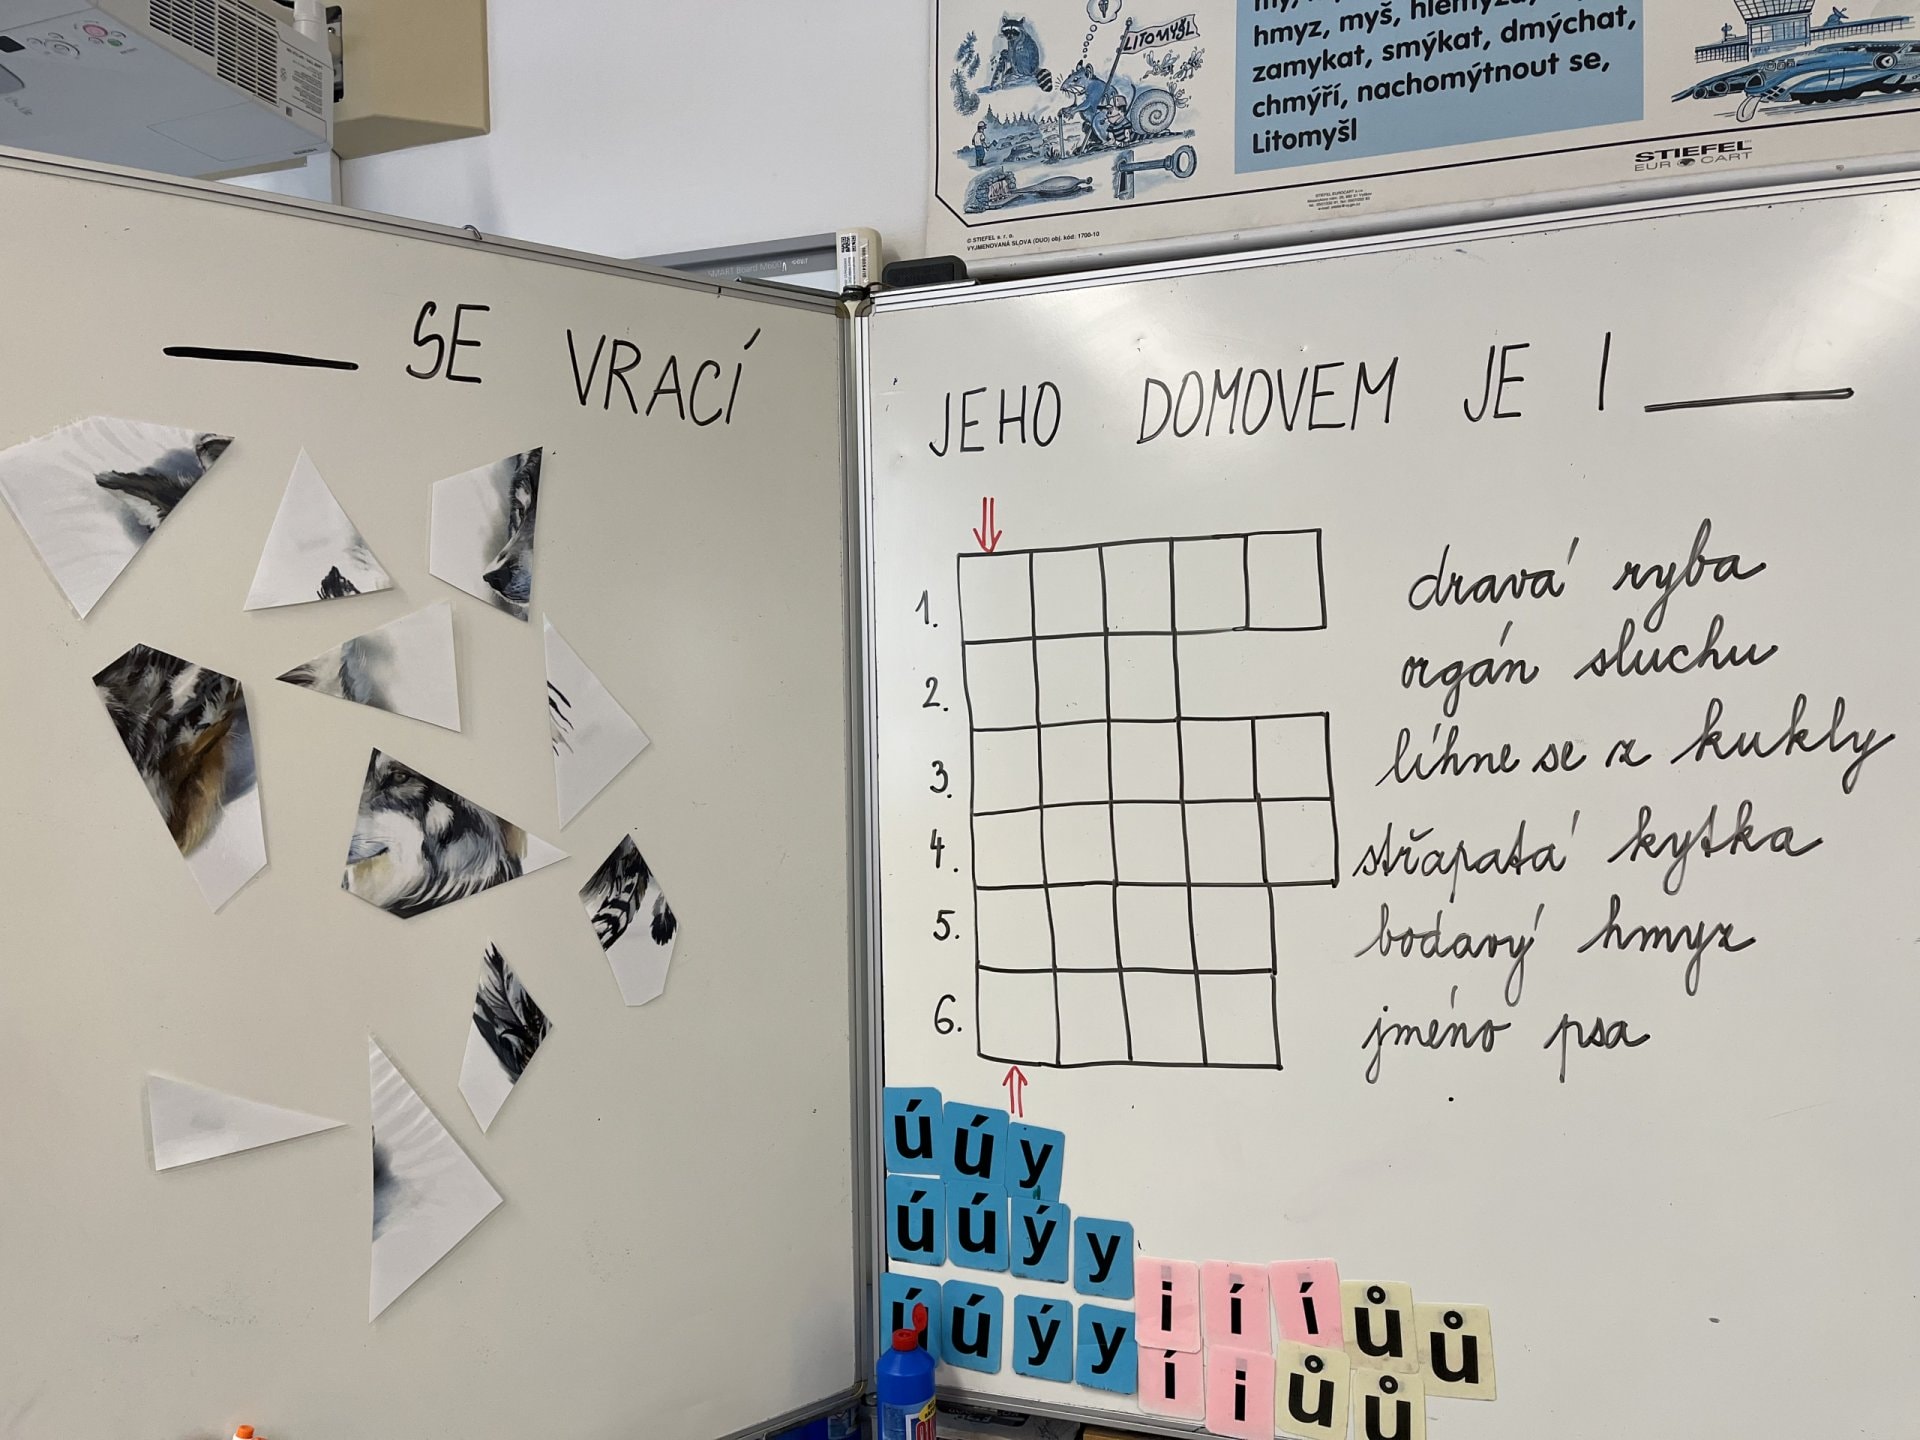 LITOMYŠL
hmyz, myš, hlemýžď,
zamykat, smýkat, dmýchat,
chmýří, nachomýtnout se,
Litomyšl
STIEFEL
EUROCART
© STIEFEL s. r. o.
VYJMENOVANÁ SLOVA (DUO) obj. kód: 1700-10
___ SE VRACÍ
JEHO DOMOVEM JE I ___
1. dravá ryba
2. orgán sluchu
3. líhne se z kukly
4. střapatá kytka
5. bodavý hmyz
6. jméno psa
ú ú y
ú ú ý y
ú ú ý y
i í í ů ů
í i ů ů